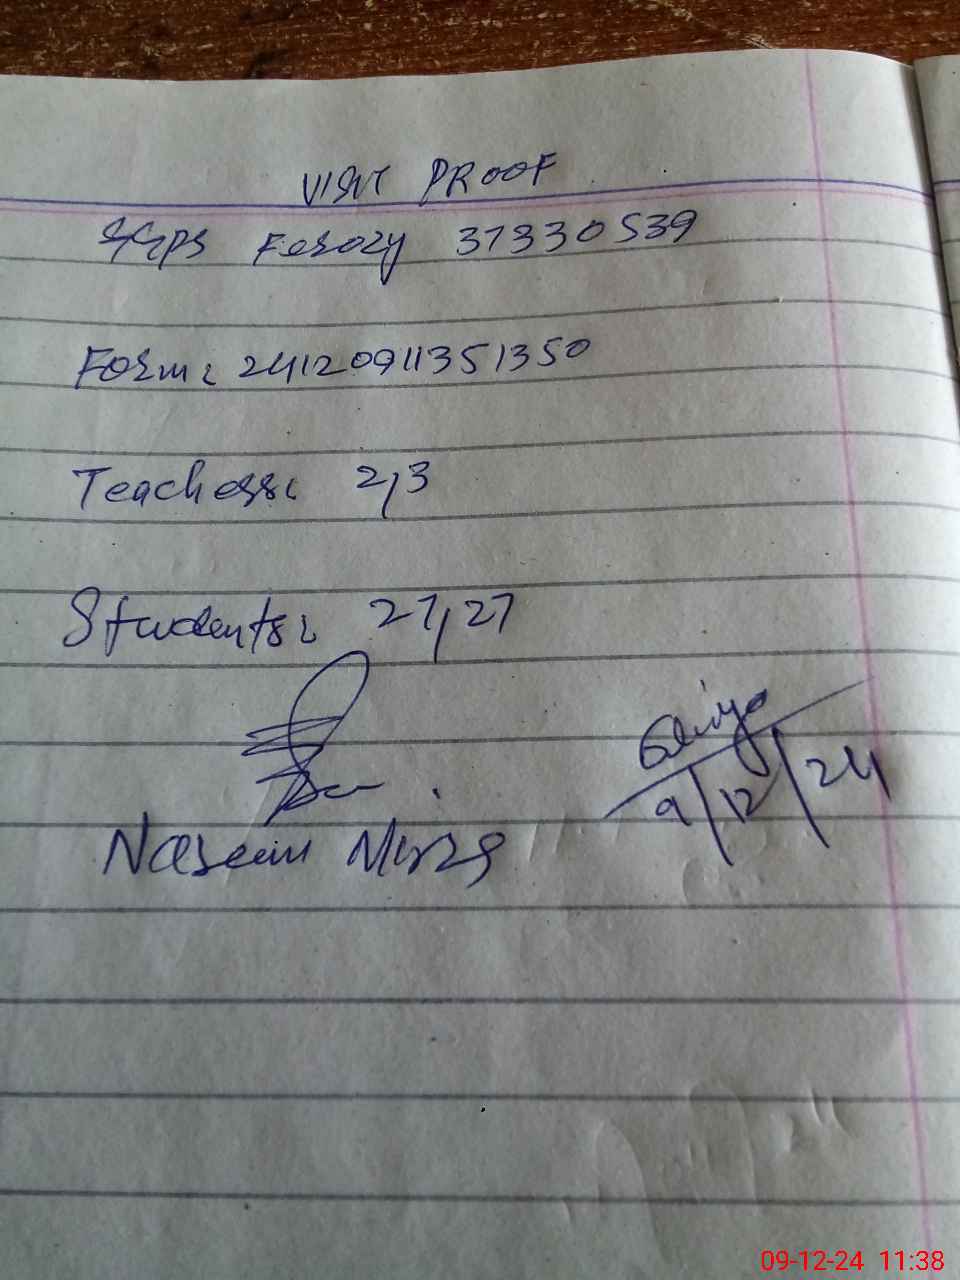 VISIT PROOF
GGPS Ferozy 37330539
Form: 24120911351350
Teachers: 2/3
Students: 27/27
9/12/24
Naseem Mirza
09-12-24 11:38